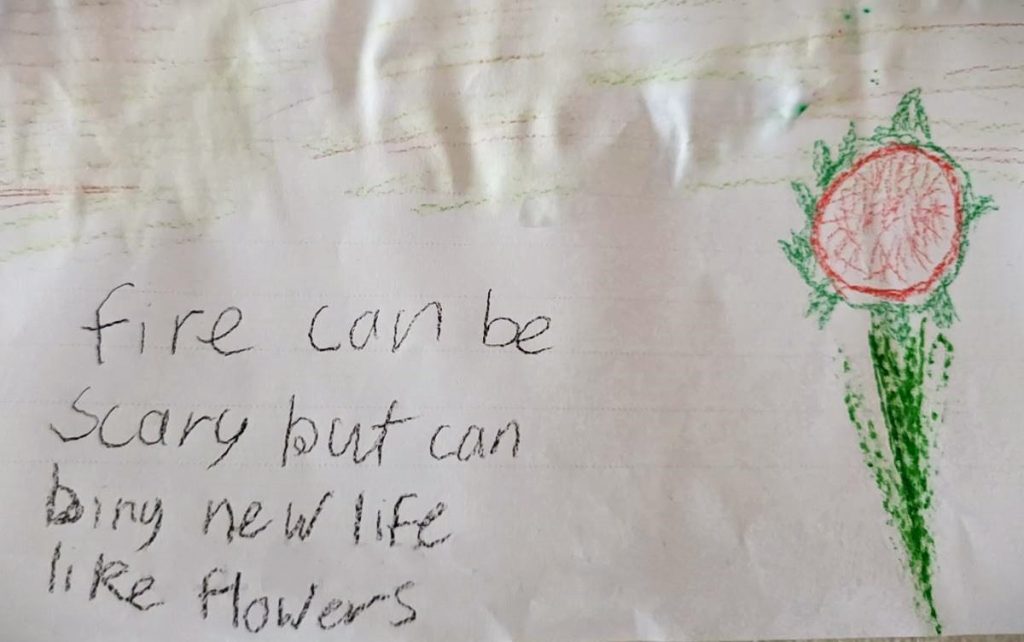 fire can be
scary but can
bing new life
like flowers